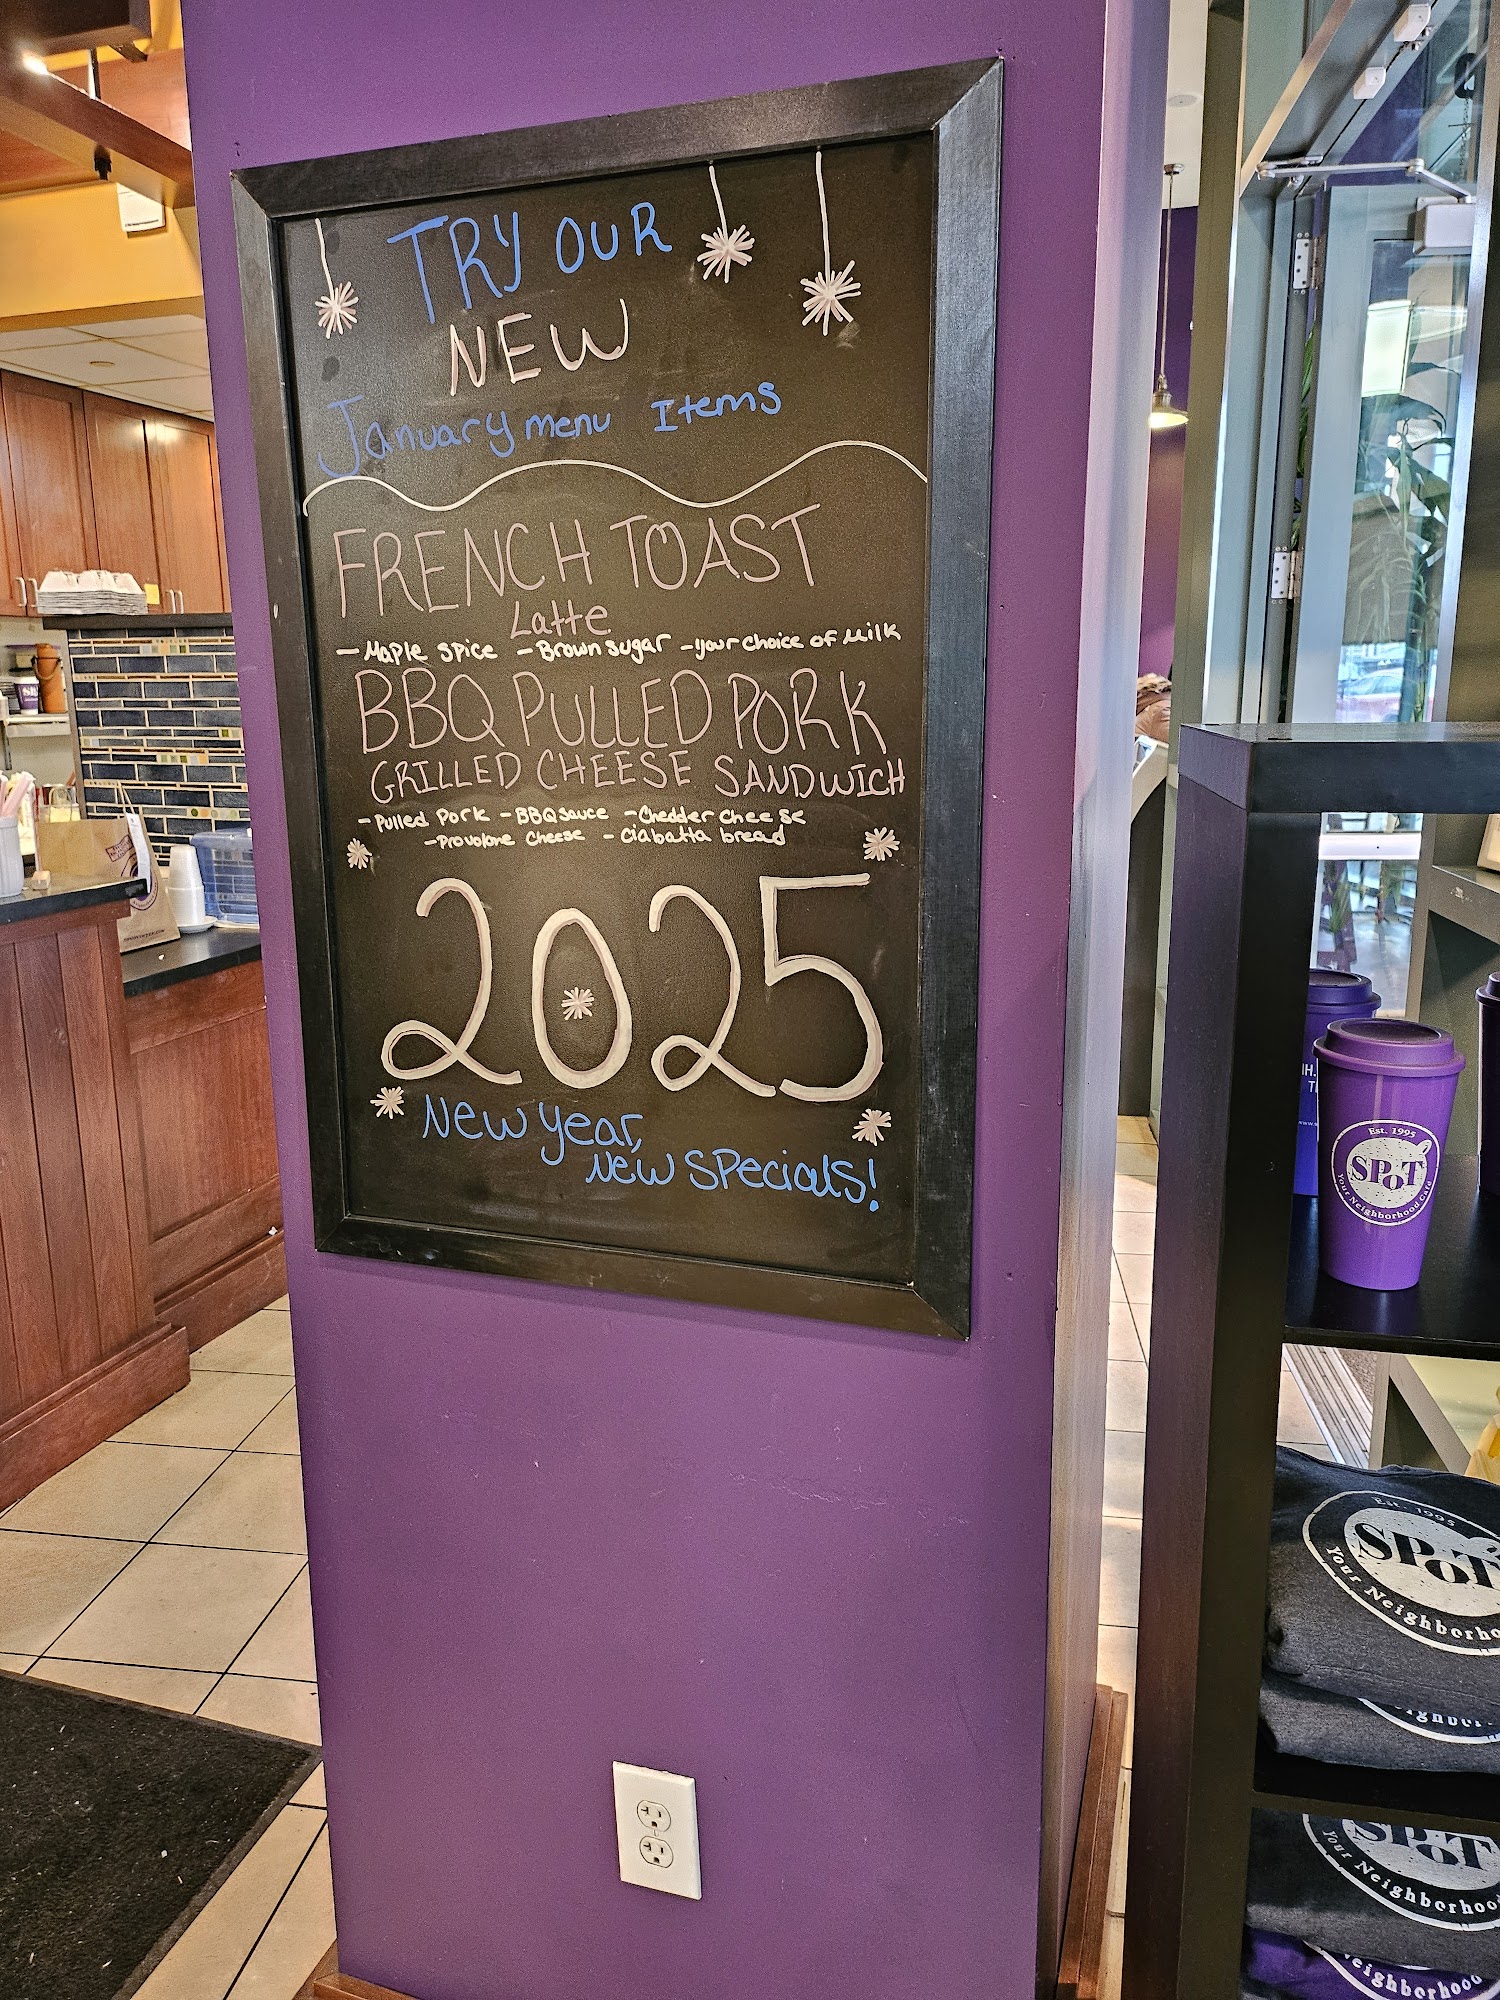 TRY OUR
NEW
January menu Items
FRENCH TOAST
Latte
- Maple spice - Brown sugar - your choice of milk
BBQ PULLED PORK
GRILLED CHEESE SANDWICH
- Pulled Pork - BBQ sauce - Chedder cheese
- Provolone cheese - Ciabatta bread
2025
New year,
New specials!
Est. 1995
SPoT
Your Neighborhood Café
Est. 1995
SPoT
Your Neighborho
SPoT
Your Neighborhoo
eighborhoo